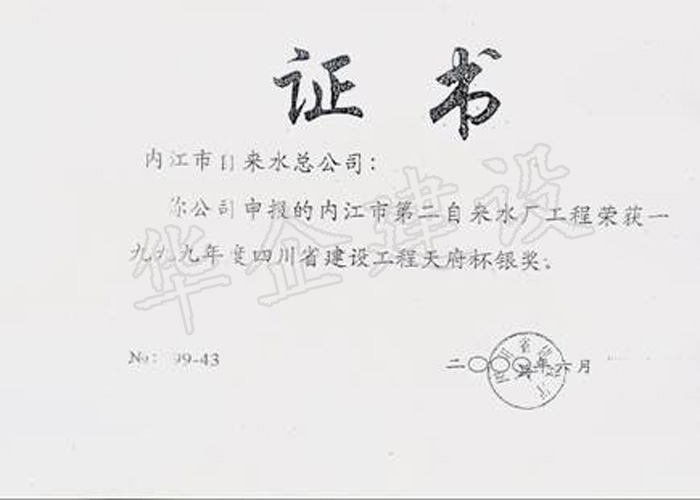 证书
内江市自来水总公司：
你公司申报的内江市第二自来水厂工程荣获一
九九九年度四川省建设工程天府杯银奖。
No: 99-43
二〇〇〇年六月
华企建设